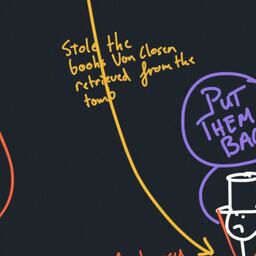 Stole the
books Von Closen
retrieved from the
tomb
PUT
THEM
BAC